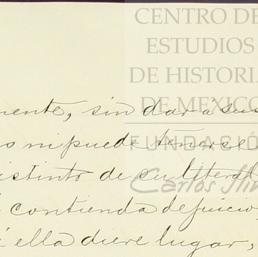 CENTRO DE
ESTUDIOS
DE HISTORIA
DE MEXICO
FUNDACIÓ
Carlos Sli
mente, sin dar á sus
ni puede tenerse
istinto de su literal
contienda de juicio,
ella diere lugar,